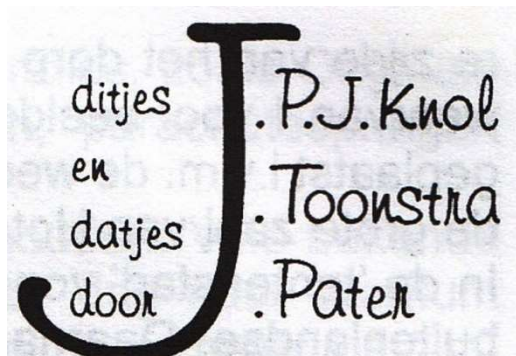 ditjes
en
datjes
door
J.P.J. Knol
J.Toonstra
J.Pater